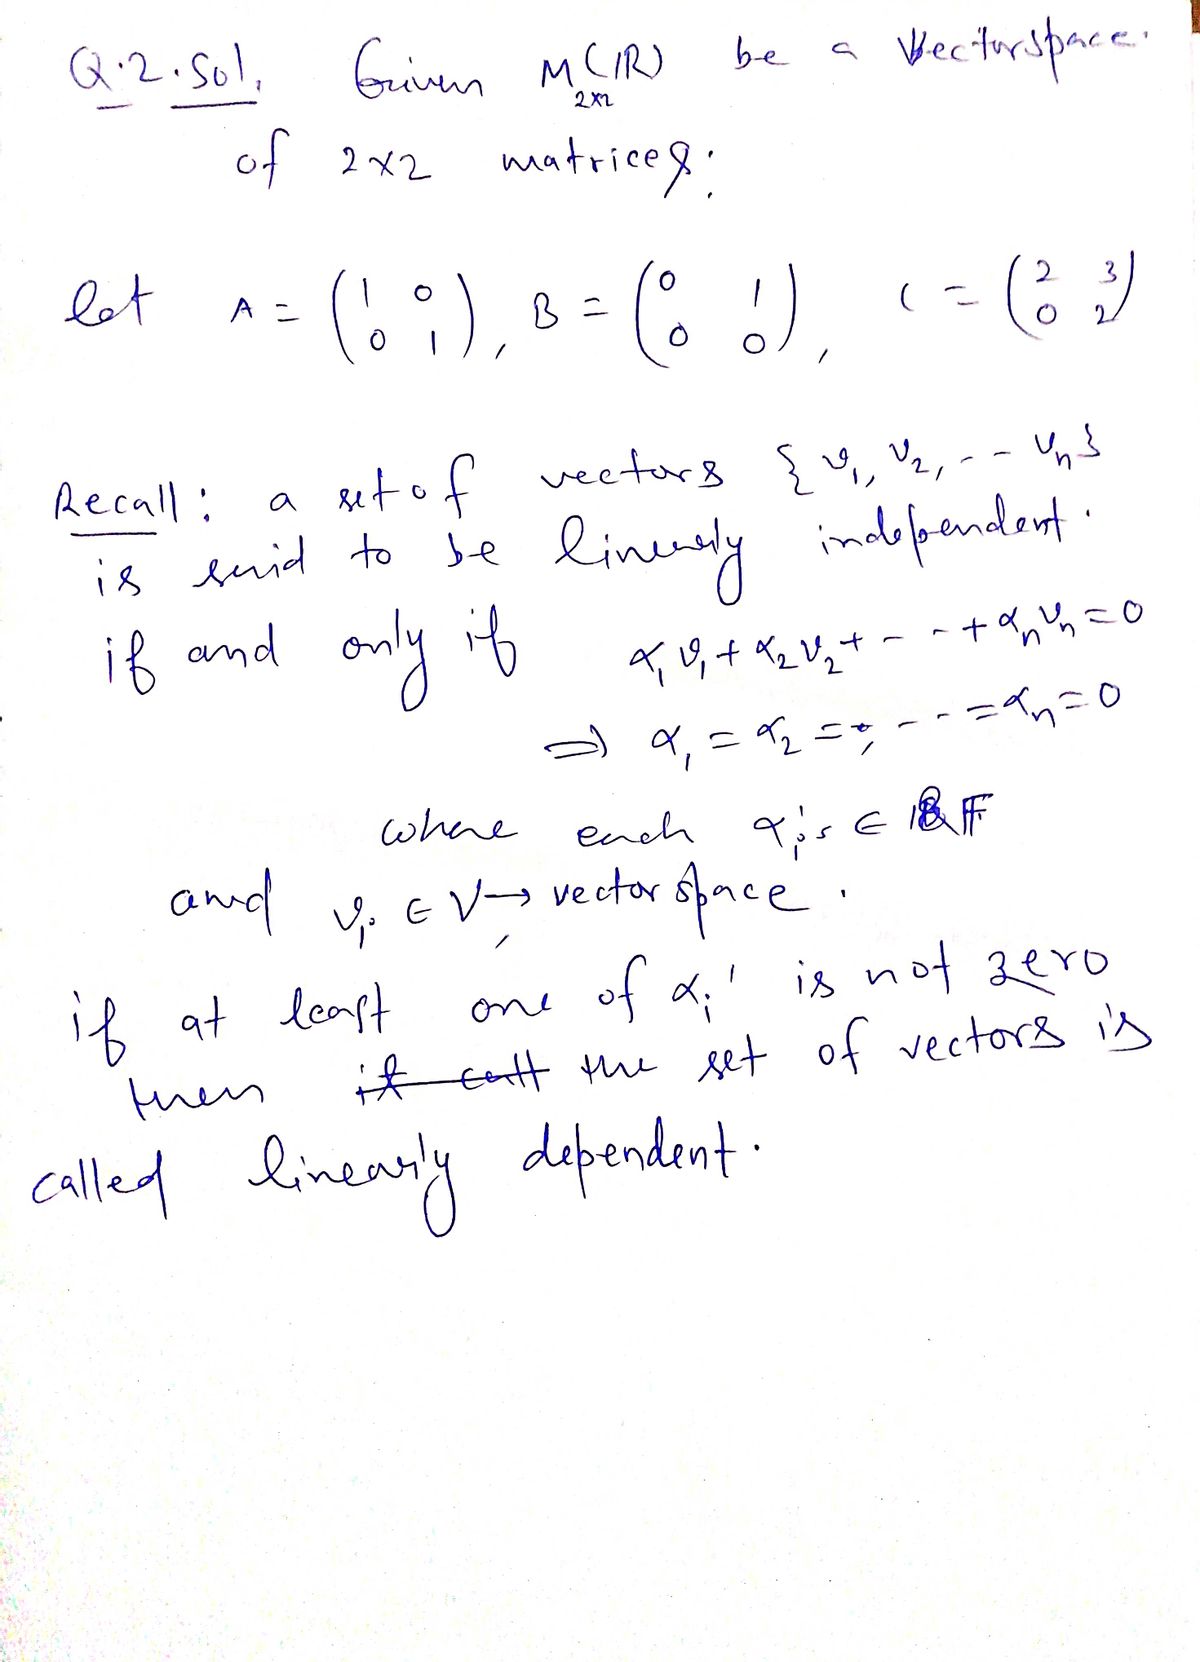 Q.2.Sol. Given M(IR) be a Vectorspace.
2x2
of 2x2 matrices:
let A = (1 0 0 1), B = (0 1 0 0), C = (2 3 0 2)
Recall: a set of vectors {v₁, v₂, -- vₙ}
is said to be linearly independent.
if and only if α₁v₁ + α₂v₂ + - - + αₙvₙ = 0
⇒ α₁ = α₂ = , - - = αₙ = 0
where each αᵢ's ∈ F
and vᵢ ∈ V → vector space.
if at least one of αᵢ' is not zero
then the set of vectors is
called linearly dependent.